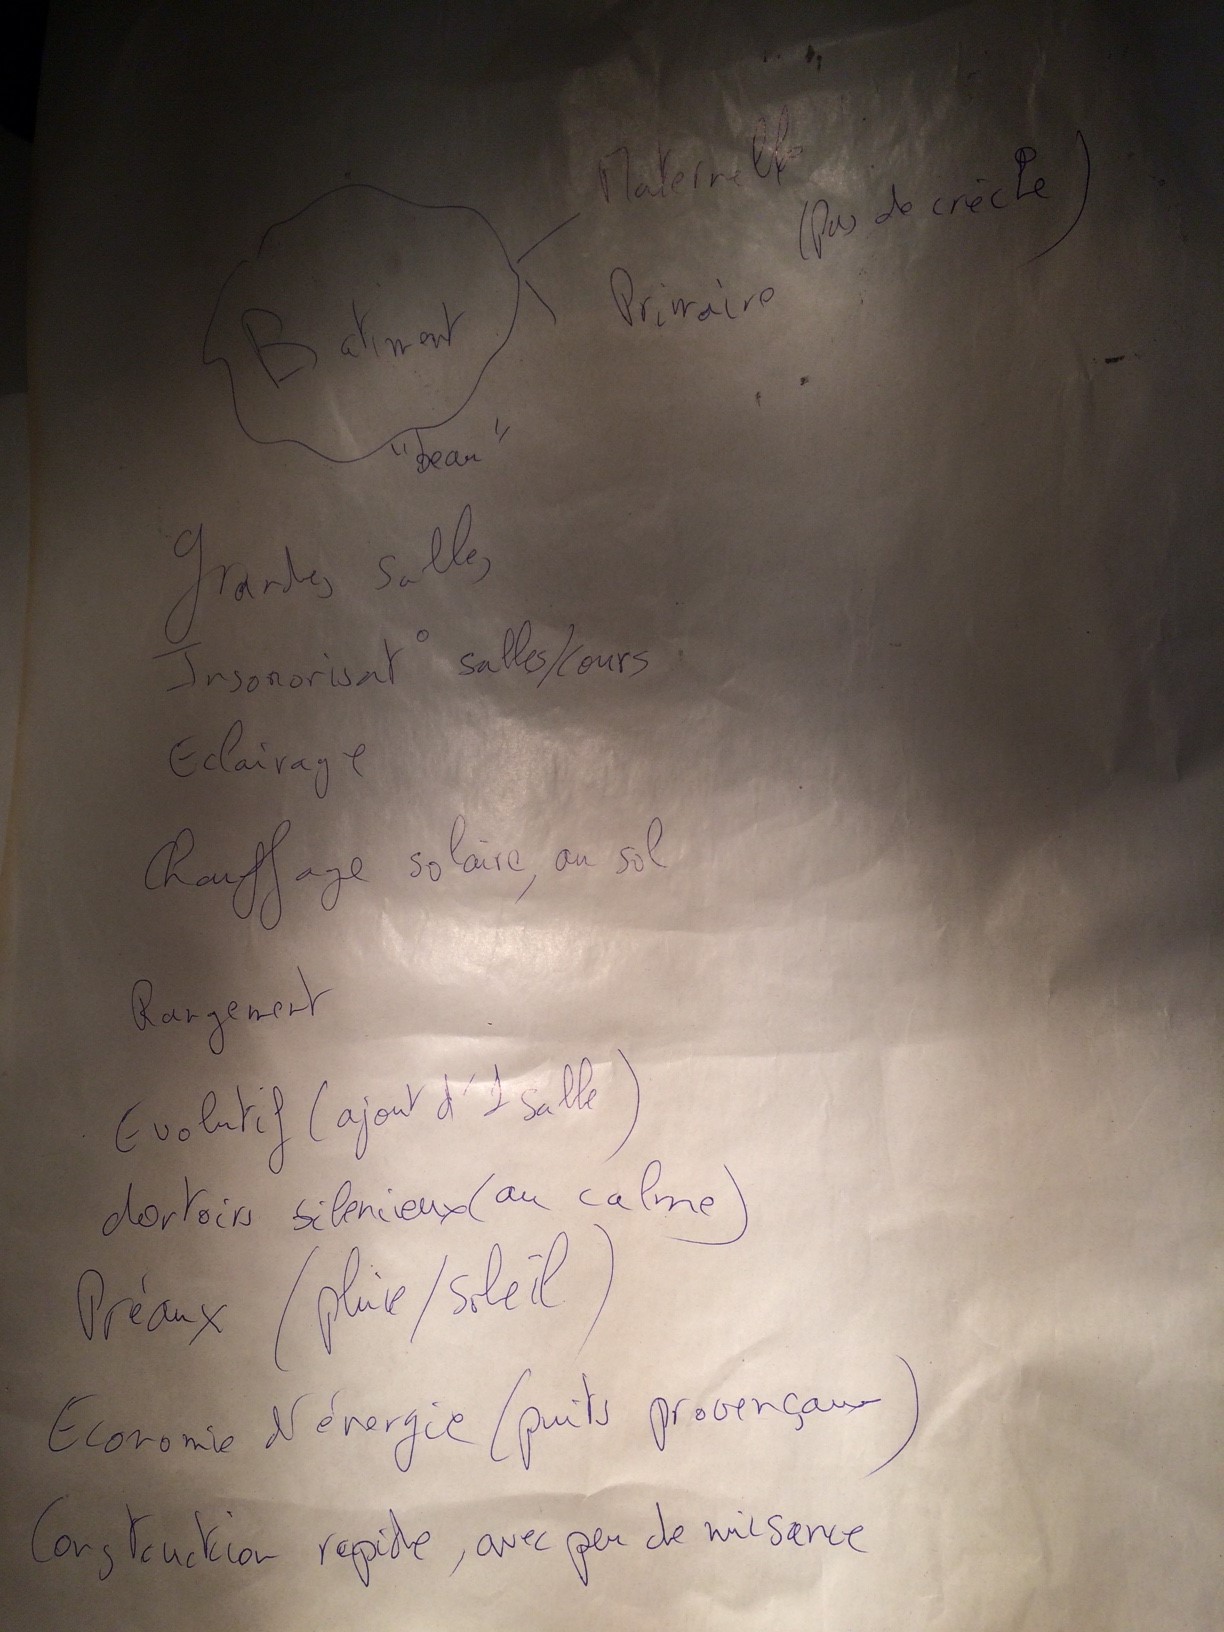 Maternelle
(pas de crèche)
Batiment
Primaire
"beau"
Grandes salles
Insonorisat° salles/cours
Eclairage
Chauffage solaire, au sol
Rangement
Evolutif (ajout d'1 salle)
dortoirs silenieux (au calme)
Préaux (pluie/soleil)
Economie d'énergie (puits provençaux)
Construction rapide, avec peu de nuisance